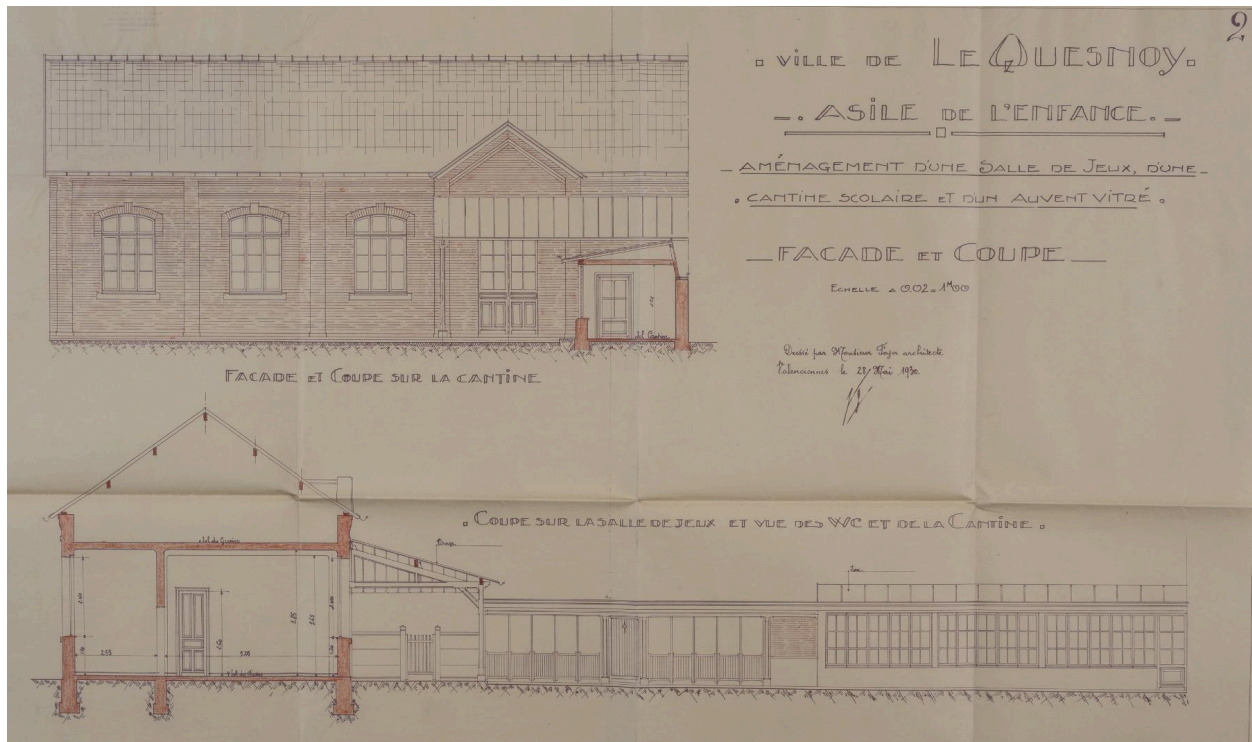 2
. VILLE DE LE QUESNOY.
_ . ASILE DE L'ENFANCE . _
_ AMÉNAGEMENT D'UNE SALLE DE JEUX, D'UNE _
. CANTINE SCOLAIRE ET D'UN AUVENT VITRÉ .
_ FACADE ET COUPE _
ECHELLE A 0.02 = 1M00
Dressé par Monsieur architecte
Valenciennes le 28 Mai 1930
FACADE ET COUPE SUR LA CANTINE
. COUPE SUR LA SALLE DE JEUX ET VUE DES WC ET DE LA CANTINE .
Sol du Grenier
2.55
5.06
3.85